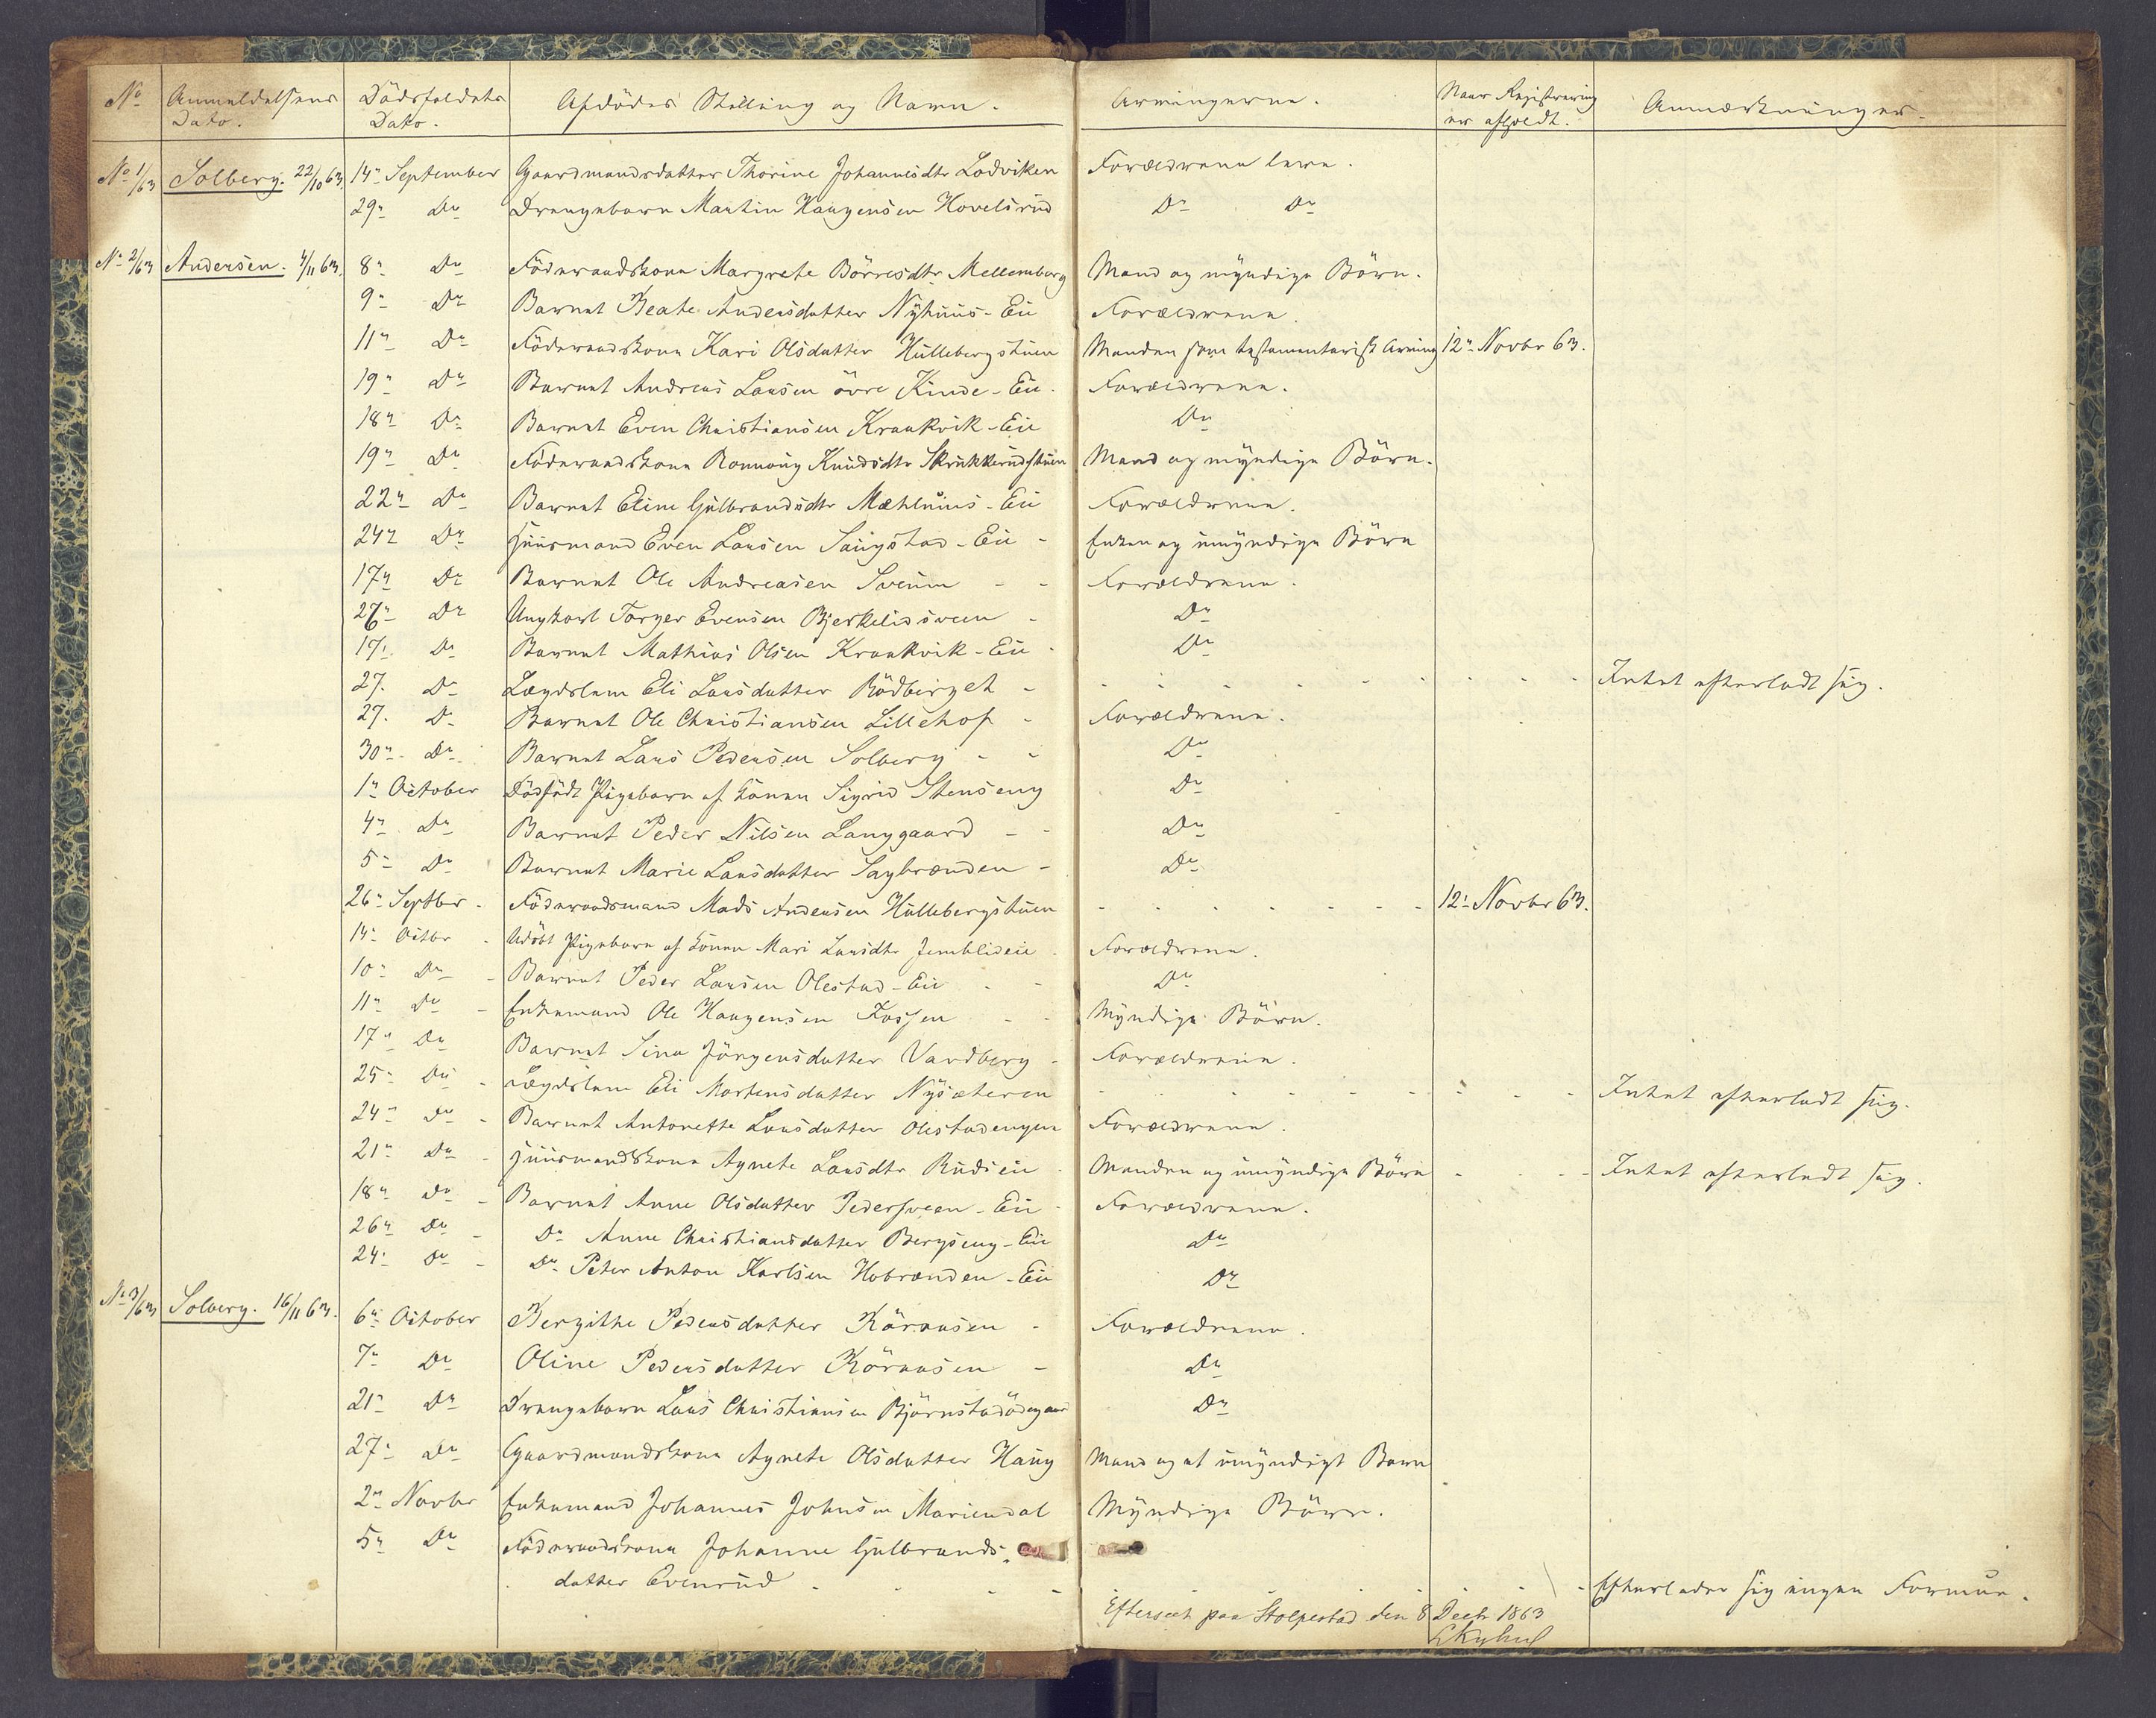 No Anmeldelsens Dato. Dödsfaldets Dato. Afdödes Stilling og Navn. Arvingerne. Naar Registrering er afholdt. Anmærkninger.
No 1/63 Solberg. 22/10 63. 14n September Gaardmandsdatter Thorine Johannesdtr Lodviken Forældrene leve.
29n Do Drengebarn Martin Haagensen Hovelsrud Do Do
No 2/63 Andersen. 4/11 63. 8n Do Föderaadskone Margrete Börresdtr Mellemborg Mand og myndige Börn.
9n Do Barnet Beate Andersdatter Nyhuus-Eie Forældrene.
11n Do Föderaadskone Kari Olsdatter Hullebergstuen Manden som testamentarisk Arving 12n Novbr 63.
19n Do Barnet Andreas Larsen övre Kinde-Eie. Forældrene.
18n Do Barnet Even Christiansen Kraakvik-Eie Do
19n Do Föderaadskone Ronnoug Knudsdtr Skrukkerudstuen Mand og myndige Börn.
22n Do Barnet Eline Gulbrandsdtr Mæhluus-Eie Forældrene.
24n Do Huusmand Even Larsen Saugstad-Eie - Enken og umyndige Börn
17n Do Barnet Ole Andreasen Sveum - - Forældrene.
27n Do Ungkarl Torger Evensen Bjerkelidsveen - Do
17. Do Barnet Mathias Olsen Kraakvik-Eie - Do
27. Do Lægdslem Eli Larsdatter Rödbirget - - - - - Intet efterladt sig.
27. Do Barnet Ole Christiansen Lillehof - Forældrene.
30n Do Barnet Lars Pedersen Solberg - - Do
1n October Dödfödt Pigebarn af Konen Sigrid Stenseng Do
4n Do Barnet Peder Nilsen Langgaard - - Do
5n Do Barnet Marie Larsdatter Sagbrænden - Do
26n Septbr - Föderaadsmand Mads Andersen Hullebergstuen - - - - 12n Novbr 63.
14n Octbr - Udöbt Pigebarn af Konen Mari Larsdtr Jemblideie - Forældrene.
10n Do - Barnet Peder Larsen Olestad-Eie - - Do
11n Do - Enkemand Ole Haagensen Fossen - - Myndige Börn.
17n Do Barnet Sina Jörgensdatter Vardberg - Forældrene.
25n Do - Lægdslem Eli Mortensdatter Nysæteren - - - - Intet efterladt sig.
24n Do - Barnet Antonette Larsdatter Olestadengen Forældrene.
21n Do - Huusmandskone Agnete Larsdtr Rudseie Manden og umyndige Börn - - - Intet efterladt sig.
18n Do - Barnet Anne Olsdatter Pedersveen-Eie - Forældrene.
26n Do - Do Anne Christiansdatter Bergseng-Eie Do
24n Do - Do Peter Anton Karlsen Hobrænden-Eie Do
No 3/63 Solberg. 16/11 63. 6n October Bergithe Pedersdatter Röraasen - Forældrene.
7n Do Oline Pedersdatter Röraasen - Do
21n Do Drengebarn Lars Christiansen Björnstadödegaard Do
27n Do Gaardmandskone Agnete Olsdatter Haug Mand og et umyndigt Barn
2n Novbr Enkemand Johannes Johnsen Mariendal Myndige Börn.
5n Do Föderaadskone Johanne Gulbrands-
datter Evensrud - - - - - - Efterlader sig ingen Formue.
Efterseet paa Stolpestad den 8 Decbr 1863